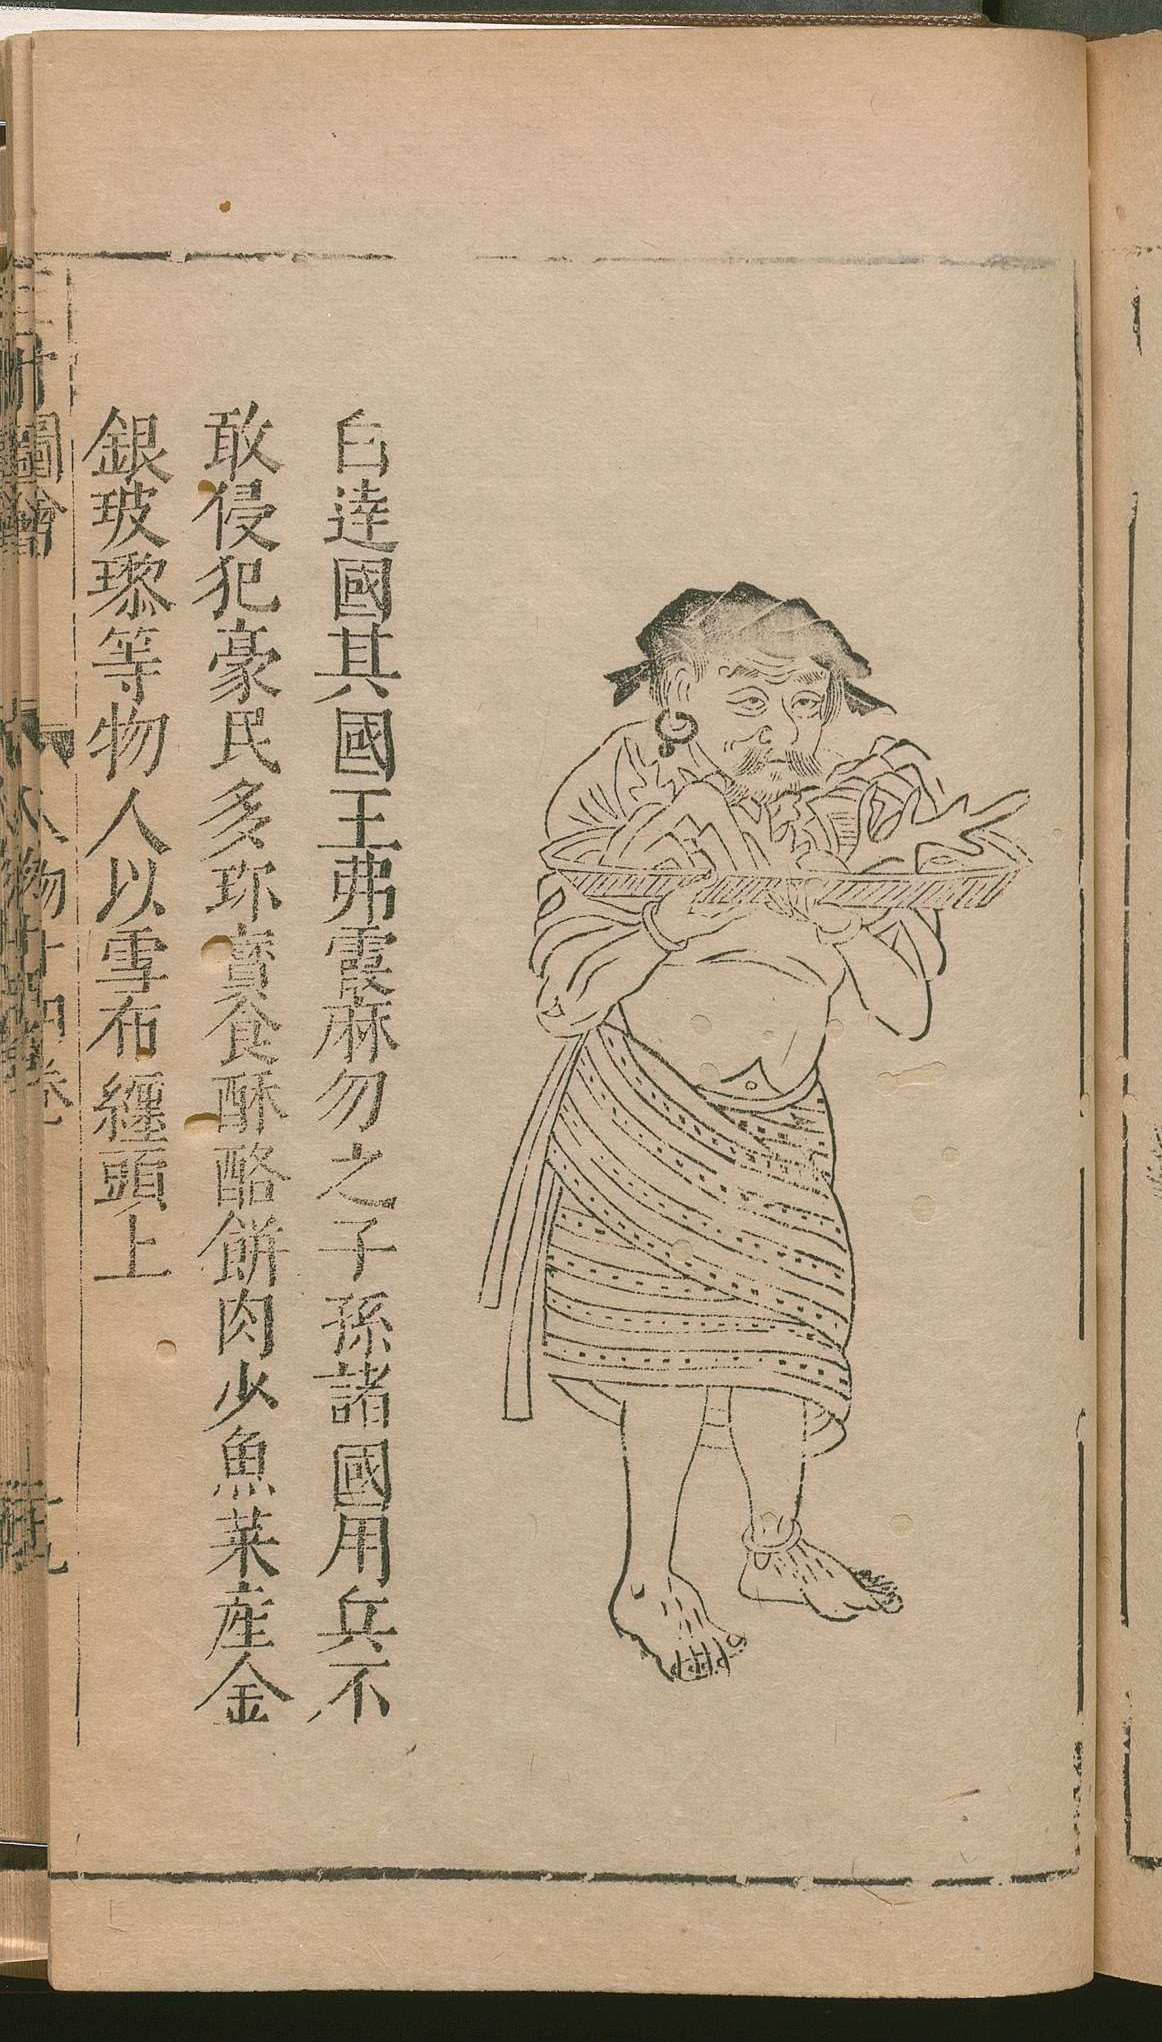 白達國其國王弗霞麻勿之子孫諸國用兵不
敢侵犯豪民多珎寳食酥酪餅肉少魚菜産金
銀玻瓈等物人以雪布纏頭上
圖會
人物十四卷